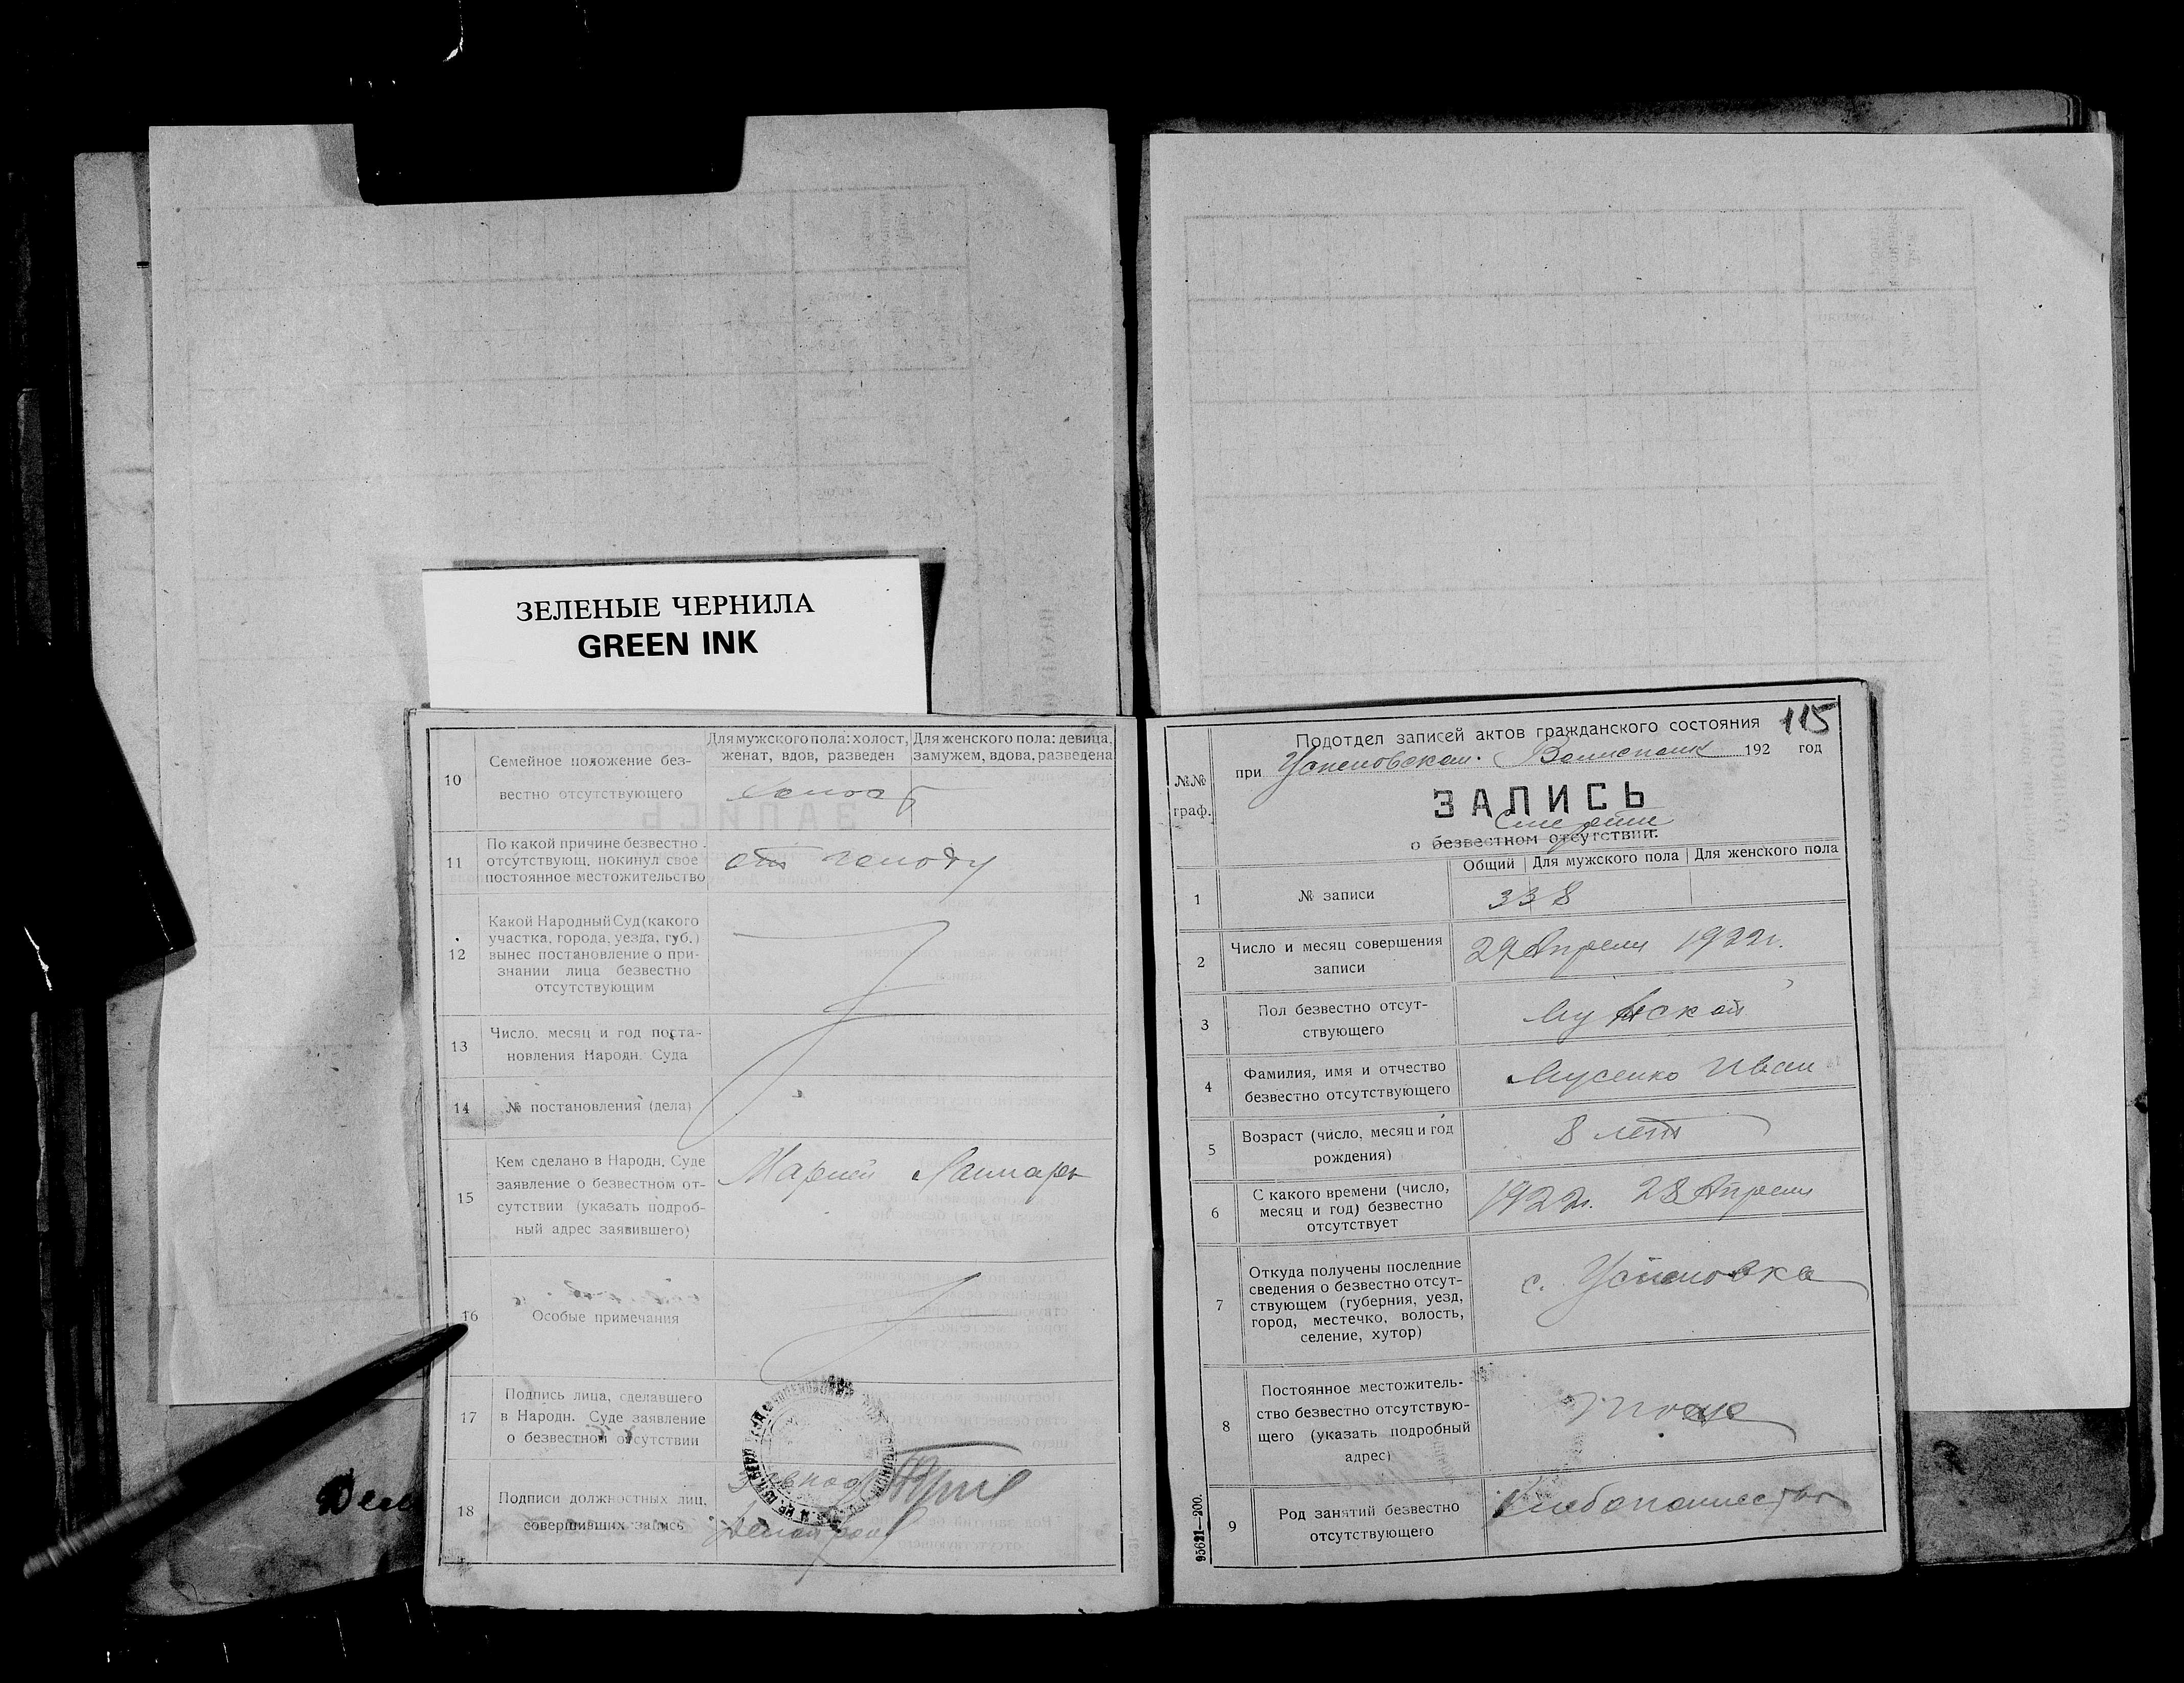 ЗЕЛЕНЫЕ ЧЕРНИЛА
GREEN INK
10
Семейное положение без-
вестно отсутствующего
Для мужского пола: холост,
женат, вдов, разведен
Для женского пола: девица,
замужем, вдова, разведена
холост
11
По какой причине безвестно
отсутствующ. покинул свое
постоянное местожительство
от голоду
12
Какой Народный Суд (какого
участка, города, уезда, губ.)
вынес постановление о при-
знании лица безвестно
отсутствующим
13
Число, месяц и год поста-
новления Народн. Суда
14
№ постановления (дела)
15
Кем сделано в Народн. Суде
заявление о безвестном от-
сутствии (указать подроб-
ный адрес заявившего)
Марией
16
Особые примечания
17
Подпись лица, сделавшего
в Народн. Суде заявление
о безвестном отсутствии
18
Подписи должностных лиц,
совершивших запись
Завпод
115
Подотдел записей актов гражданского состояния
при Успеновском Волисполк 192 год
№№
граф.
ЗАПИСЬ
смерти
о безвестном отсутствии.
Общий Для мужского пола Для женского пола
1
№ записи
338
2
Число и месяц совершения
записи
29 Апреля 1922г.
3
Пол безвестно отсут-
ствующего
Мужской
4
Фамилия, имя и отчество
безвестно отсутствующего
Мусенко Иван
5
Возраст (число, месяц и год
рождения)
8 лет
6
С какого времени (число,
месяц и год) безвестно
отсутствует
1922г. 28 Апреля
7
Откуда получены последние
сведения о безвестно отсут-
ствующем (губерния, уезд,
город, местечко, волость,
селение, хутор)
с. Успеновка
8
Постоянное местожитель-
ство безвестно отсутствую-
щего (указать подробный
адрес)
тоже
9
Род занятий безвестно
отсутствующего
Хлебопашество
95621—200.